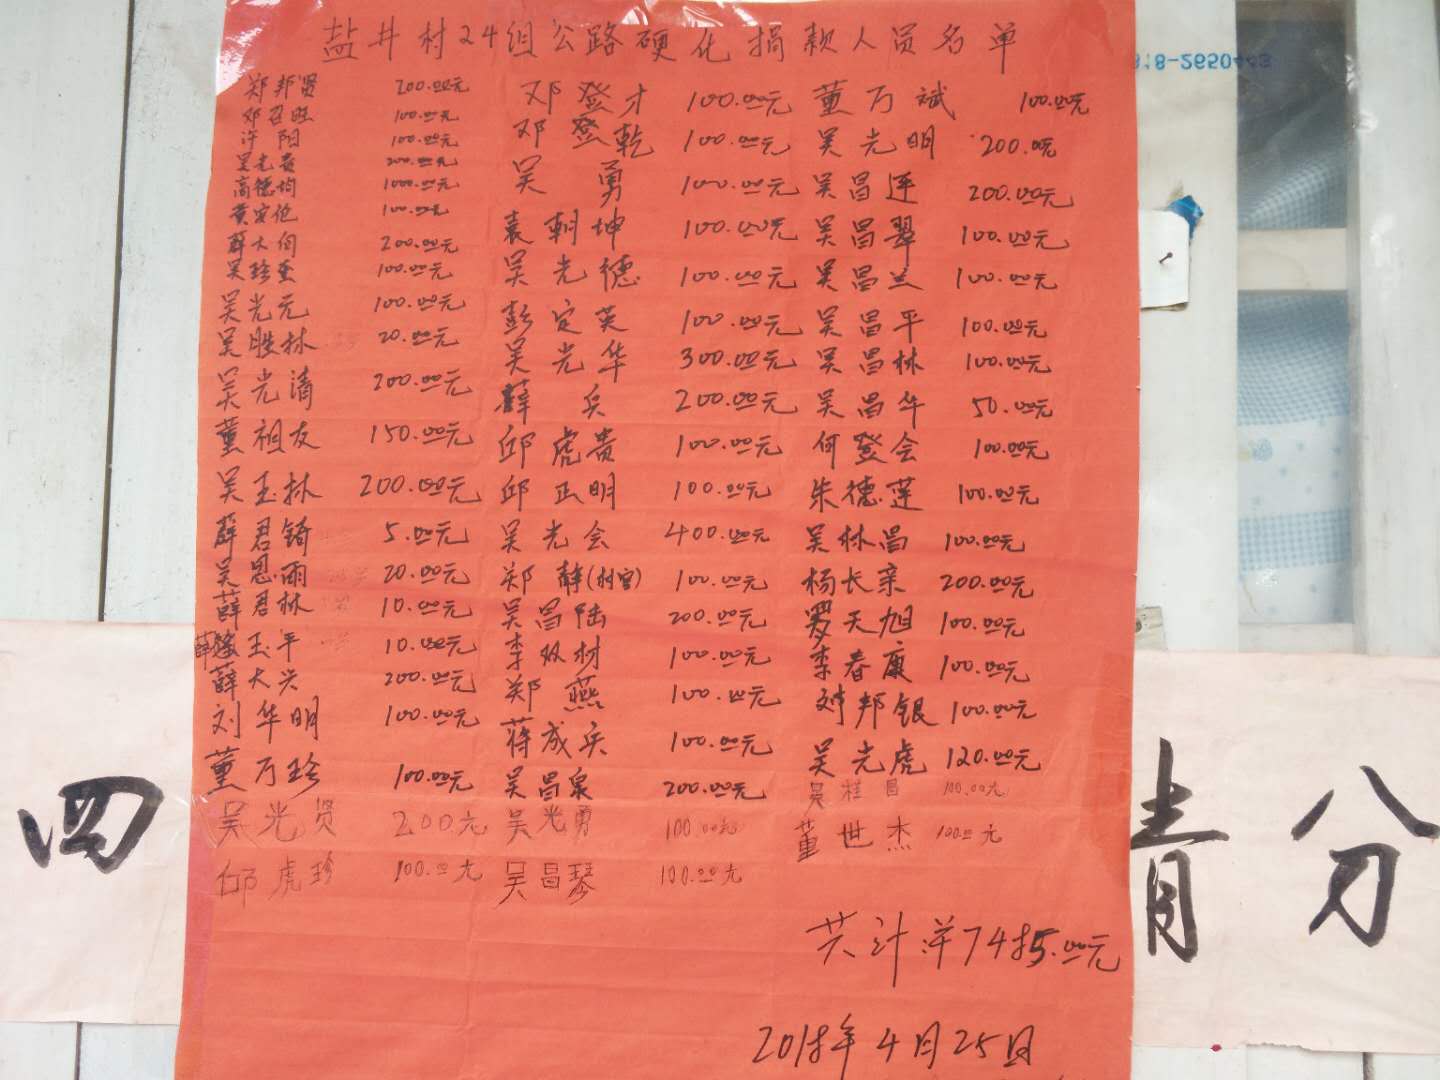 盐井村24组公路硬化捐款人员名单
郑邦贤 200.00元
邓召旺 100.00元
许阳 100.00元
吴光贵 200.00元
高德均 1000.00元
黄定伦 100.00元
薛大伯 200.00元
吴珍奎 100.00元
吴光元 100.00元
吴胜林 20.00元
吴光清 200.00元
董祖友 150.00元
吴玉林 200.00元
薛君锜 5.00元
吴恩雨 20.00元
薛君林 10.00元
薛玉平 10.00元
薛大兴 200.00元
刘华明 100.00元
董万珍 100.00元
吴光贤 200元
邱虎珍 100.00元
邓登才 100.00元
邓登乾 100.00元
吴勇 100.00元
袁朝坤 100.00元
吴光德 100.00元
彭定英 100.00元
吴光华 300.00元
薛兵 200.00元
邱虎贵 100.00元
邱正明 100.00元
吴光会 400.00元
郑静(村官) 100.00元
吴昌陆 200.00元
李双材 100.00元
郑燕 100.00元
蒋成兵 100.00元
吴昌泉 200.00元
吴光勇 100.00元
吴昌琴 100.00元
董万斌 100.00元
吴光明 200.00元
吴昌连 200.00元
吴昌翠 100.00元
吴昌兰 100.00元
吴昌平 100.00元
吴昌林 100.00元
吴昌华 50.00元
何登会 100.00元
朱德莲 100.00元
吴林昌 100.00元
杨长亲 200.00元
罗天旭 100.00元
李春康 100.00元
刘邦银 100.00元
吴光虎 120.00元
吴桂昌 100.00元
董世杰 100.00元
共计洋7485.00元
2018年4月25日
四
青
八分
818-2650443